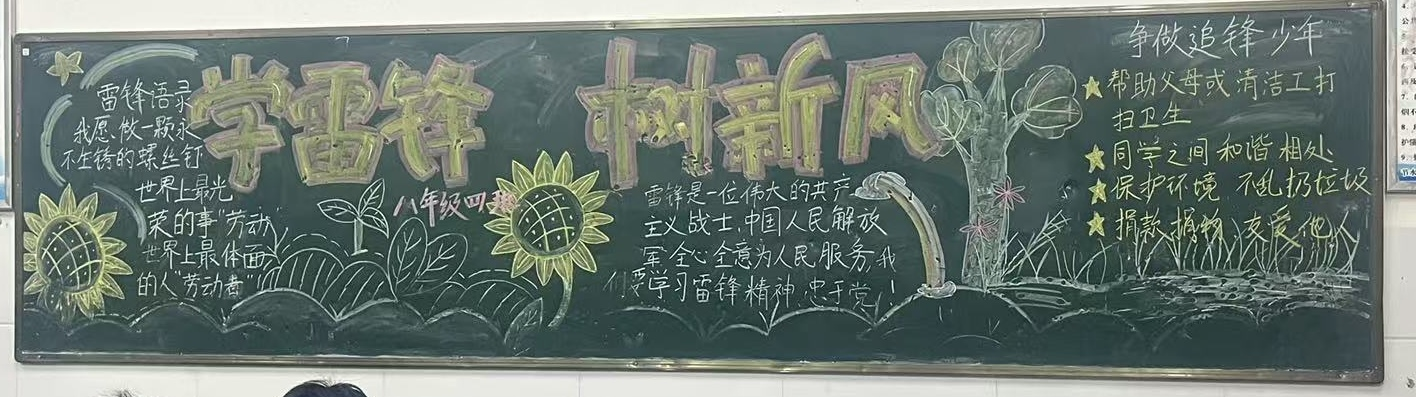 学雷锋 树新风
雷锋语录
我愿做一颗永
不生锈的螺丝钉
世界上最光
荣的事"劳动"
世界上最体面
的人"劳动者"
八年级四班
雷锋是一位伟大的共产
主义战士,中国人民解放
军全心全意为人民服务我
们要学习雷锋精神忠于党!
争做追锋少年
帮助父母或清洁工打
扫卫生
同学之间和谐相处
保护环境 不乱扔垃圾
捐款捐物 关爱他人